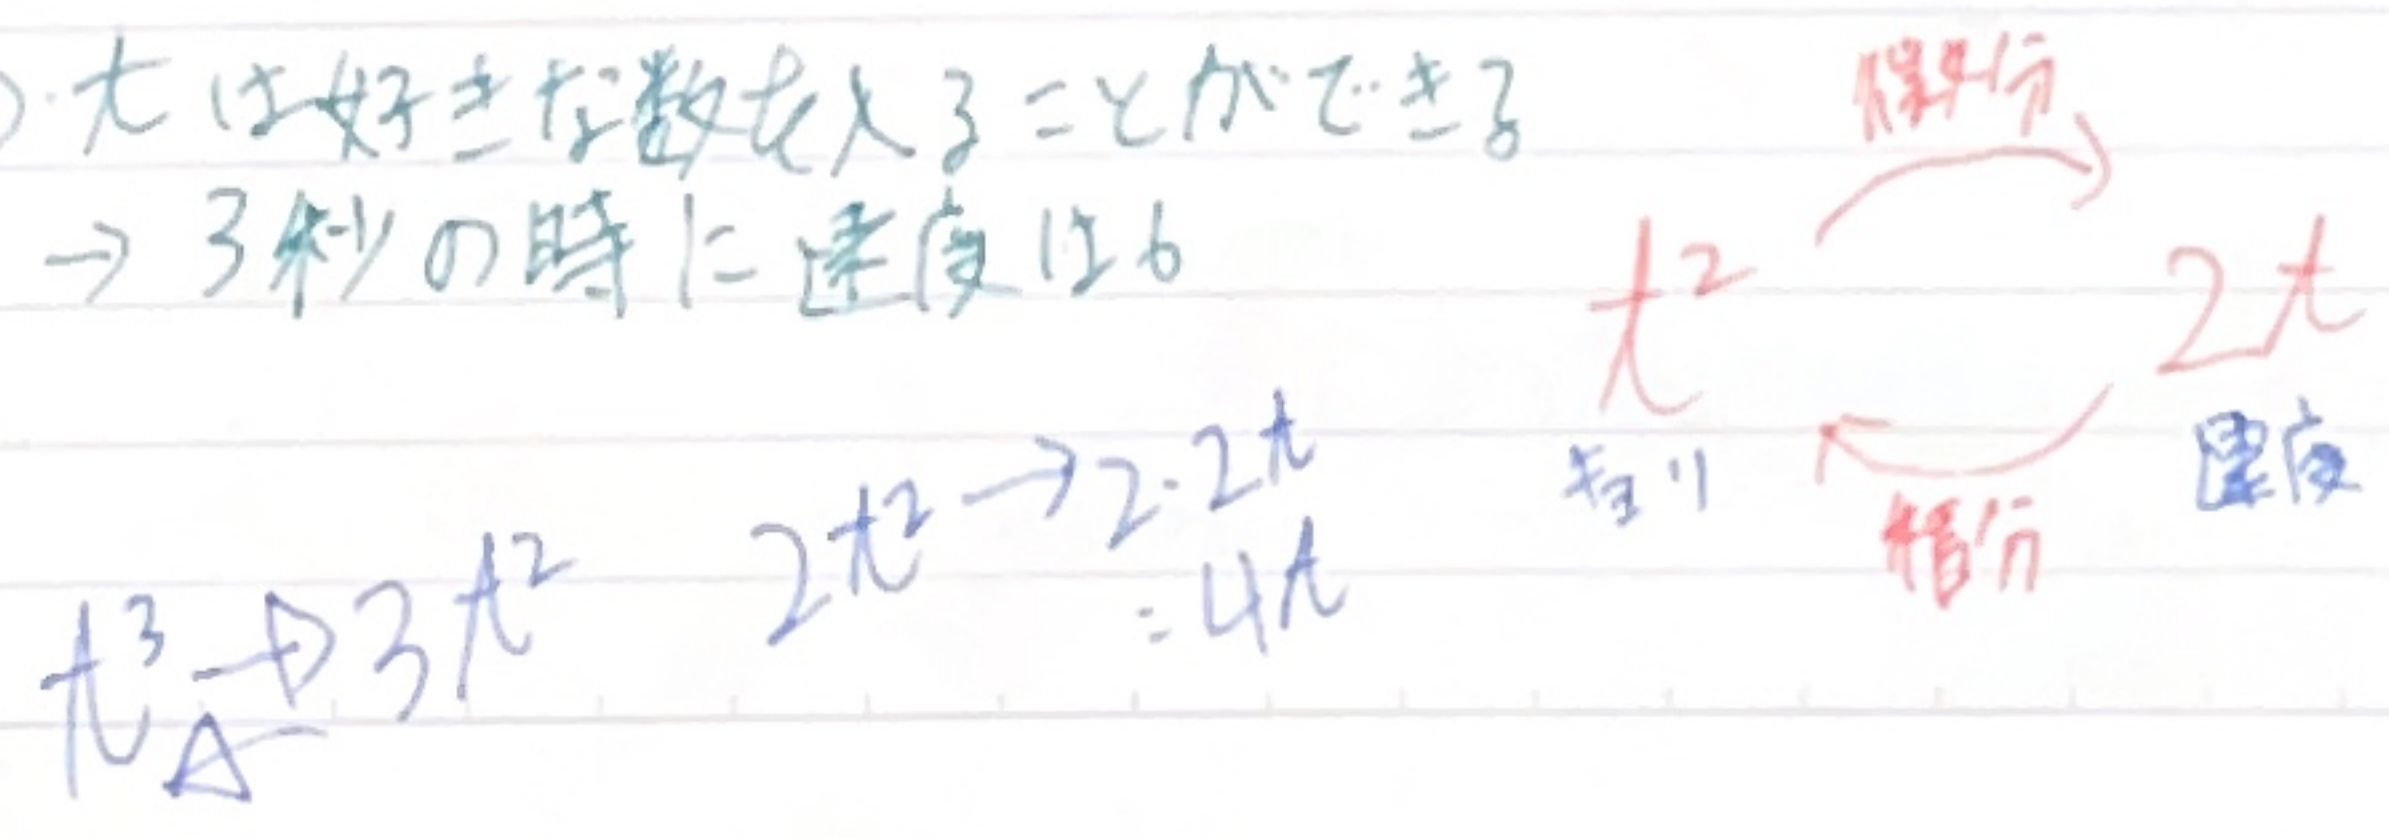 tは好きな数を入ることができる
→ 3秒の時に速度は6
微分
t² 2t
キョリ 速度
積分
2t² → 2・2t
= 4t
t³ → 3t²